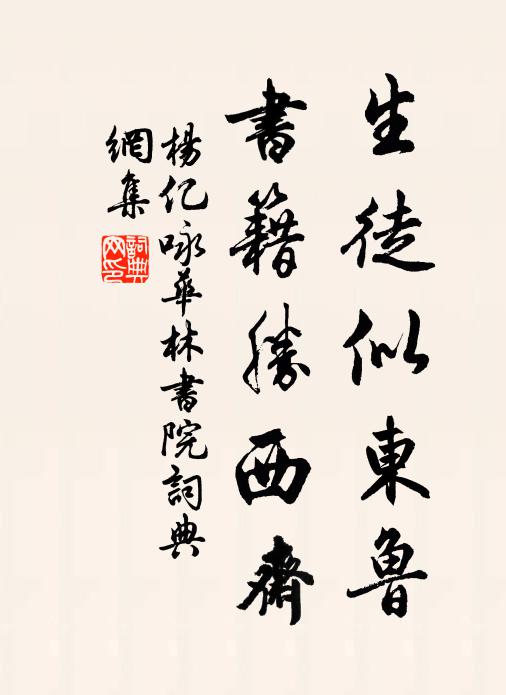 生徒似東魯
書籍勝西齋
楊億咏華林書院詞典
網集
詞典
网印